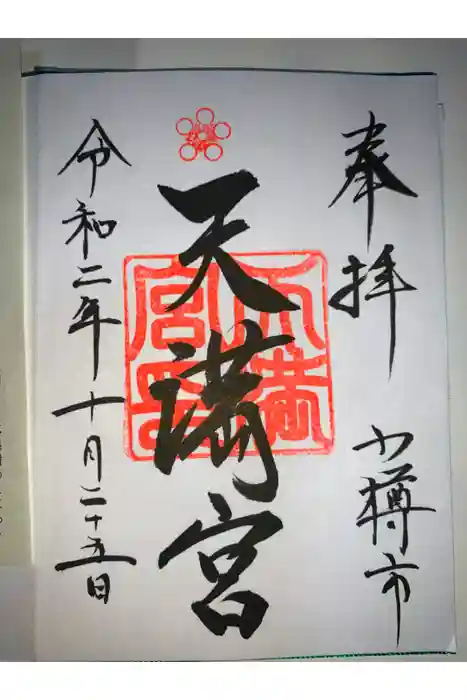 奉拝 小樽市
天満宮
天満宮印
令和二年十月二十五日